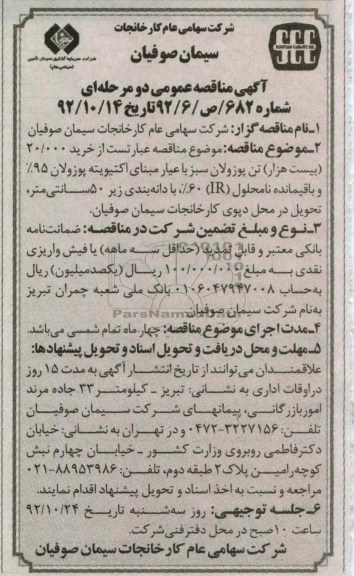 شرکت سهامی عام کارخانجات
سیمان صوفیان
آگهی مناقصه عمومی دو مرحله‌ای
شماره ۶۸۲/ص/۹۲/۶ تاریخ ۹۲/۱۰/۱۴
۱-نام مناقصه گزار: شرکت سهامی عام کارخانجات سیمان صوفیان
۲-موضوع مناقصه: موضوع مناقصه عبارتست از خرید ۲۰/۰۰۰
(بیست هزار) تن پوزولان سبز با عیار مبنای اکتیویته پوزولان ۹۵٪
و باقیمانده نامحلول (IR) ۶۰٪، با دانه‌بندی زیر ۵۰ سـانتی‌متر،
تحویل در محل دپوی کارخانجات سیمان صوفیان.
۳-نــوع و مبلغ تضمین شرکت در مناقصـه: ضمانت‌نامه
بانکی معتبر و قابل (حداقل سـه ماهه) یا فیش واریزی
نقدی بـه مبلغ ۱۰۰/۰۰۰/۰۰۰ ریـال (یکصدمیلیون) ریال
به‌حساب ۰۱۰۶۰۴۷۹۴۷۰۰۸ بانک ملی شعبه چمران تبریز
به‌نام شرکت سیمان صوفیان
۴-مدت اجرای موضوع مناقصه: چهار ماه تمام شمسی می‌باشد.
۵-مهلت و محل دریافت و تحویل اسناد و تحویل پیشنهادها:
علاقمندان می‌توانند از تاریخ انتشار آگهی به مدت ۱۵ روز
در اوقات اداری به نشانی: تبریز ـ کیلومتر ۳۳ جاده مرند
امور بازرگانـی، پیمانهـای شـرکت سـیمان صوفیـان
تلفن: ۳۲۲۷۱۵۶-۰۴۷۲ و در تهران به نشانی: خیابان
دکتر فاطمی روبروی وزارت کشـور ـ خیـابان چهارم نبش
کوچه رامین پلاک ۲ طبقه دوم، تلفن: ۸۸۹۵۳۹۸۶-۰۲۱
مراجعه و نسبت به اخذ اسناد و تحویل پیشنهاد اقدام نمایند.
۶-جلسه توجیهـی: روز سه‌شـنبه تاریـخ ۹۲/۱۰/۲۴
ساعت ۱۰ صبح در محل دفتر فنی شرکت.
شرکت سهامی عام کارخانجات سیمان صوفیان